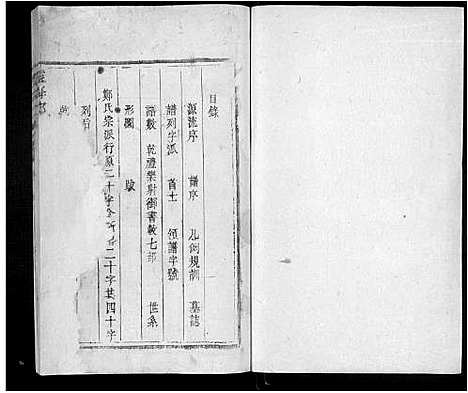 目錄
源流序 譜序 凡例規訓 墓誌
譜列字派 首士 領譜字號
譜數 乾禮樂射御書數七部 世系
形圖 跋
鄭氏宗派行原二十字今 二十字共四十字
列后